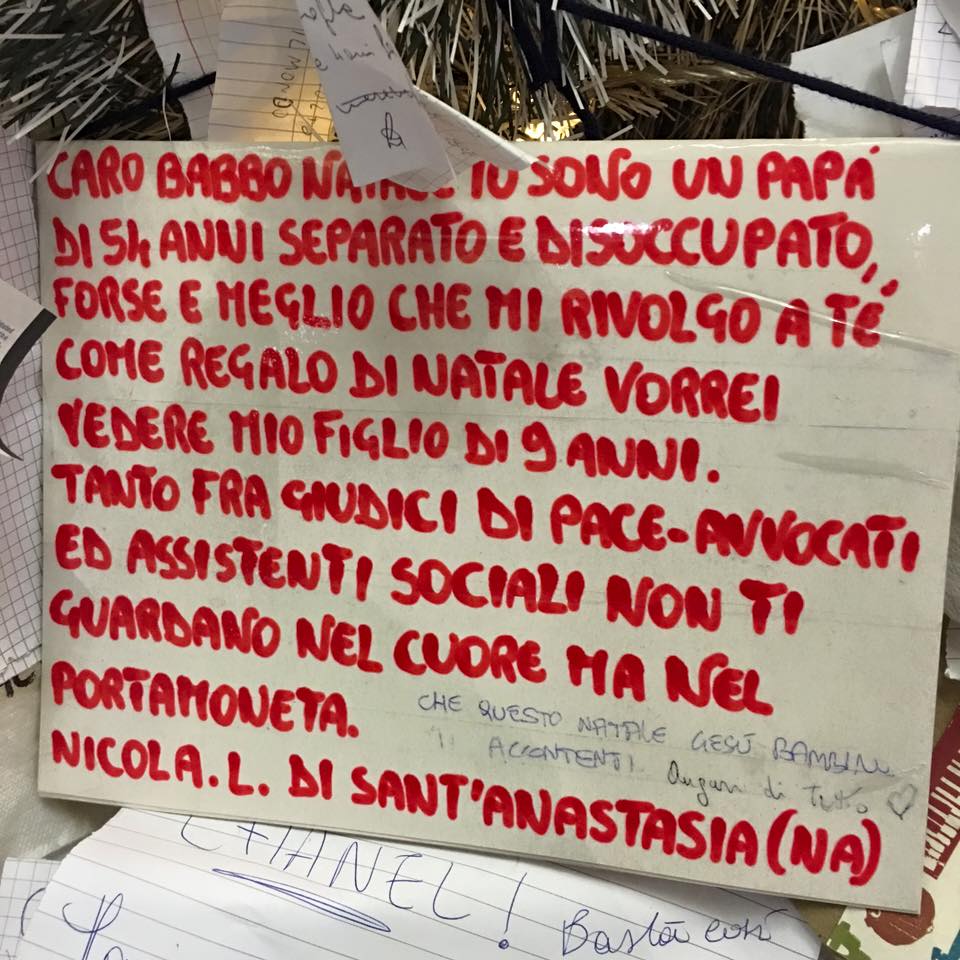 CARO BABBO NATALE IO SONO UN PAPÁ
DI 54 ANNI SEPARATO E DISOCCUPATO,
FORSE E MEGLIO CHE MI RIVOLGO A TÉ
COME REGALO DI NATALE VORREI
VEDERE MIO FIGLIO DI 9 ANNI.
TANTO FRA GIUDICI DI PACE-AVVOCATI
ED ASSISTENTI SOCIALI NON TI
GUARDANO NEL CUORE MA NEL
PORTAMONETA.
CHE QUESTO NATALE GESÙ BAMBINO
TI ACCONTENTI. Auguri di tutto ♡
NICOLA.L. DI SANT'ANASTASIA(NA)
CHANEL!
Basta così